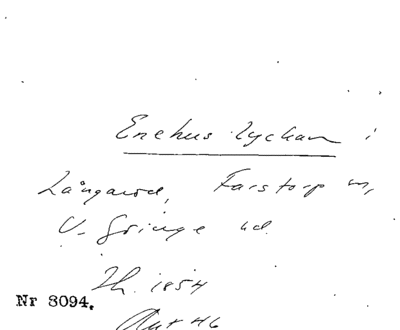 Enehus lyckan i
Långaröd, Farstorp sn,
V. Göinge hd.
Th. 1854
Nr 8094.
Ant 46